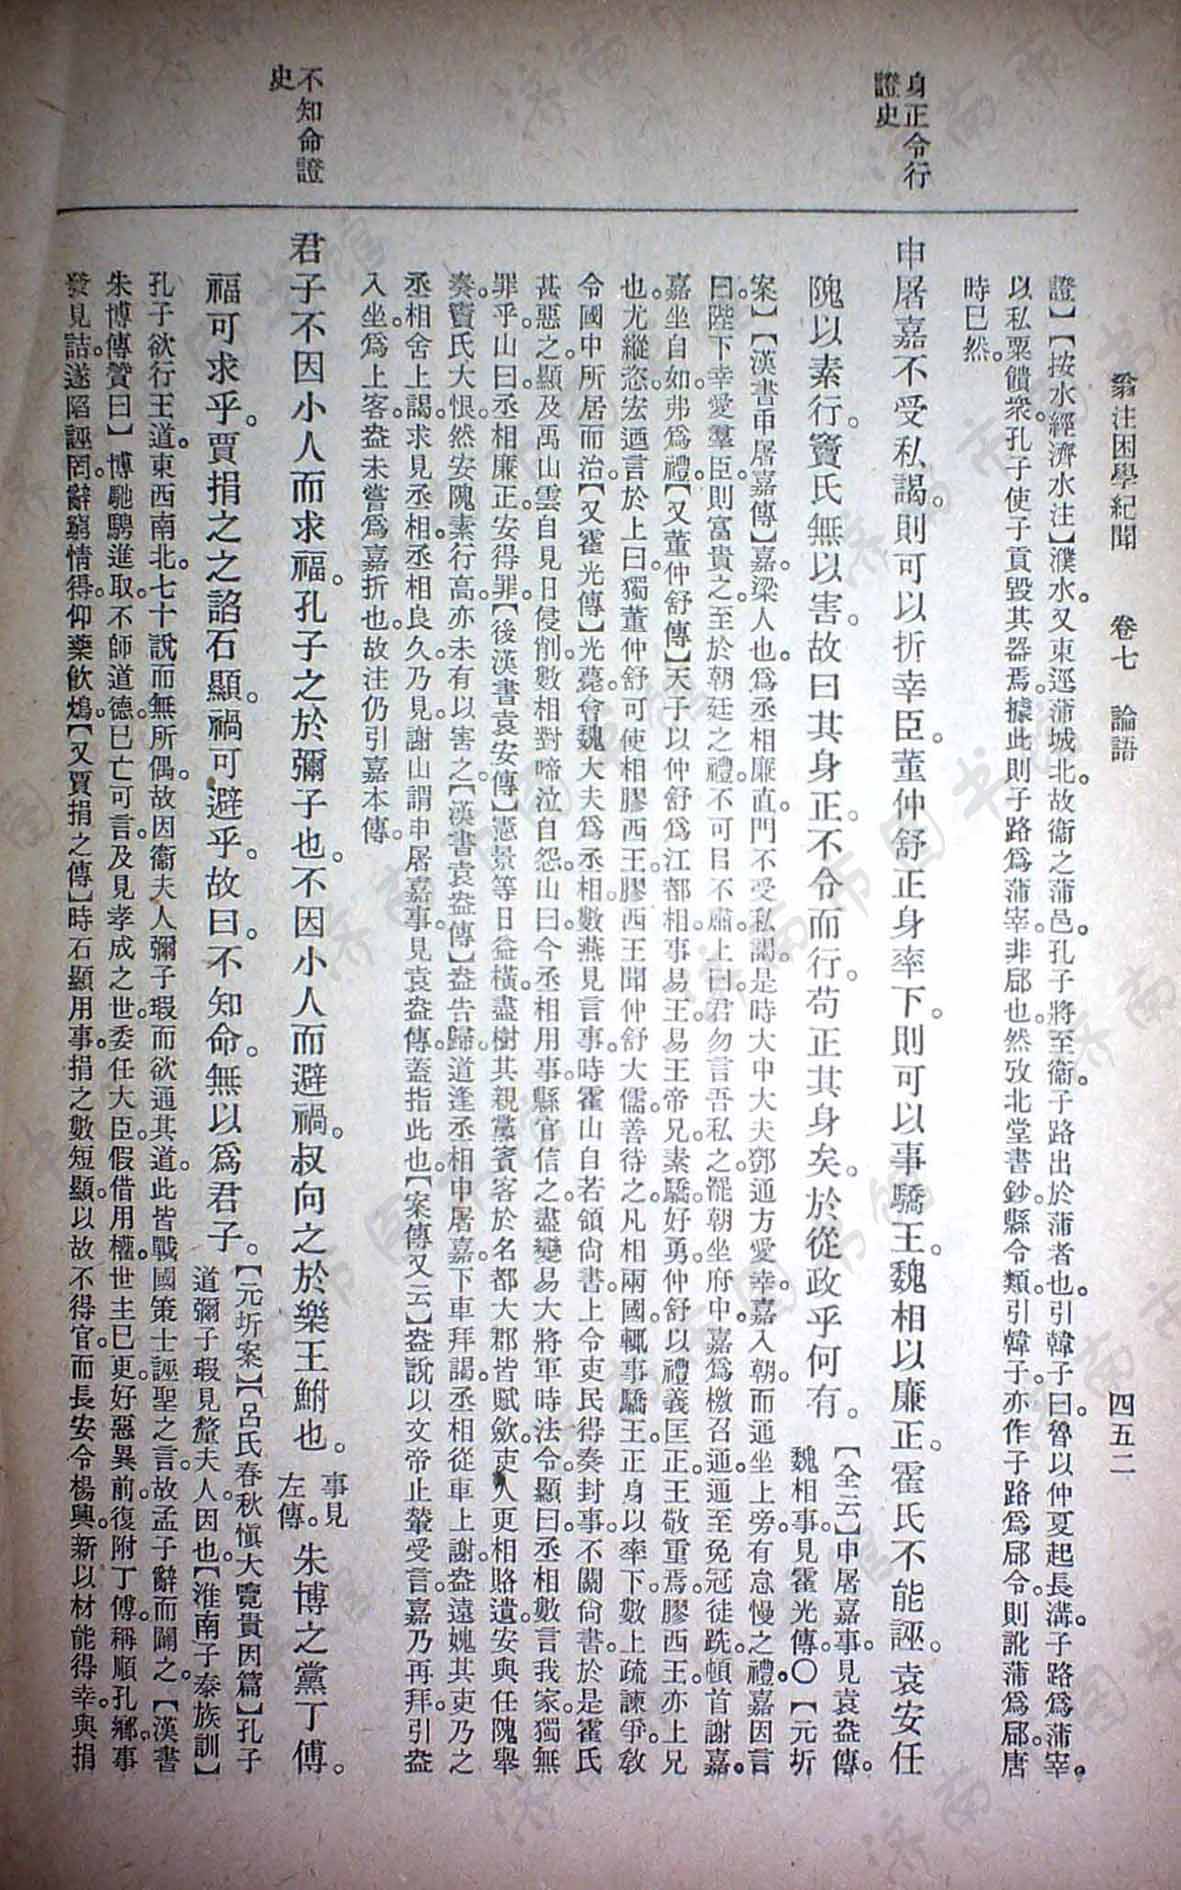 翁注困學紀聞　卷七　論語　四五二
證】【按水經濟水注】濮水又東逕蒲城北。故衞之蒲邑。孔子將至衞。子路出於蒲者也。引韓子曰。魯以仲夏起長溝。子路爲蒲宰。
以私粟饋衆。孔子使子貢毀其器焉。據此則子路爲蒲宰。非郈也。然攷北堂書鈔。縣令類。引韓子。亦作子路爲郈令。則訛蒲爲郈。唐
時已然。
身正令行
證史
申屠嘉不受私謁。則可以折幸臣。董仲舒正身率下。則可以事驕王。魏相以廉正。霍氏不能誣。袁安任
隗以素行。竇氏無以害。故曰其身正。不令而行。苟正其身矣。於從政乎何有。
【全云】申屠嘉事。見袁盎傳。
魏相事。見霍光傳。〇【元圻
案】【漢書申屠嘉傳】嘉梁人也。爲丞相。廉直。門不受私謁。是時大中大夫鄧通方愛幸。嘉入朝。而通坐上旁。有怠慢之禮。嘉因言
曰。陛下幸愛羣臣。則富貴之。至於朝廷之禮。不可㠯不肅。上曰。君勿言。吾私之。罷朝坐府中。嘉爲檄召通。通至。免冠徒跣。頓首謝嘉。
嘉坐自如。弗爲禮。【又董仲舒傳】天子以仲舒爲江都相。事易王。易王帝兄。素驕好勇。仲舒以禮義匡正。王敬重焉。膠西王。亦上兄
也。尤縱恣。宏迺言於上曰。獨董仲舒可使相膠西王。膠西王聞仲舒大儒。善待之。凡相兩國。輒事驕王。正身以率下。數上疏諫爭。敎
令國中所居而治。【又霍光傳】光薨。會魏大夫爲丞相。數燕見言事。時霍山自若領尙書。上令吏民得奏封事。不關尙書。於是霍氏
甚惡之。顯及禹山雲自見日侵削。數相對啼泣自怨。山曰。今丞相用事。縣官信之。盡變易大將軍時法令。顯曰。丞相數言我家。獨無
罪乎。山曰。丞相廉正。安得罪。【後漢書袁安傳】憲景等日益橫。盡樹其親黨賓客於名都大郡。皆賦斂。吏人更相賂遺。安與任隗舉
奏。竇氏大恨。然安隗素行高。亦未有以害之。【漢書袁盎傳】盎告歸。道逢丞相申屠嘉。下車拜謁。丞相從車上謝。盎還媿其吏。乃之
丞相舍上謁。求見丞相。丞相良久乃見。謝山謂申屠嘉事。見袁盎傳。蓋指此也。【案傳又云】盎說以文帝止輦受言。嘉乃再拜。引盎
入坐。爲上客。盎未嘗爲嘉折也。故注仍引嘉本傳。
不知命證
史
君子不因小人而求福。孔子之於彌子也。不因小人而避禍。叔向之於樂王鮒也。
事見
左傳。
朱博之黨丁傅。
福可求乎。賈捐之之諂石顯。禍可避乎。故曰。不知命。無以爲君子。
【元圻案】【呂氏春秋愼大覽貴因篇】孔子
道彌子瑕見釐夫人。因也。【淮南子泰族訓】
孔子欲行王道。東西南北。七十說而無所偶。故因衞夫人彌子瑕而欲通其道。此皆戰國策士誣聖之言。故孟子辭而闢之。【漢書
朱博傳贊曰】博馳騁進取。不師道德。已亡可言。及見孝成之世。委任大臣。假借用權。世主已更。好惡異前。復附丁傅。稱順孔鄉。事
發見詰。遂陷誣罔。辭窮情得。仰藥飲鴆。【又賈捐之傳】時石顯用事。捐之數短顯。以故不得官。而長安令楊興。新以材能得幸。與捐